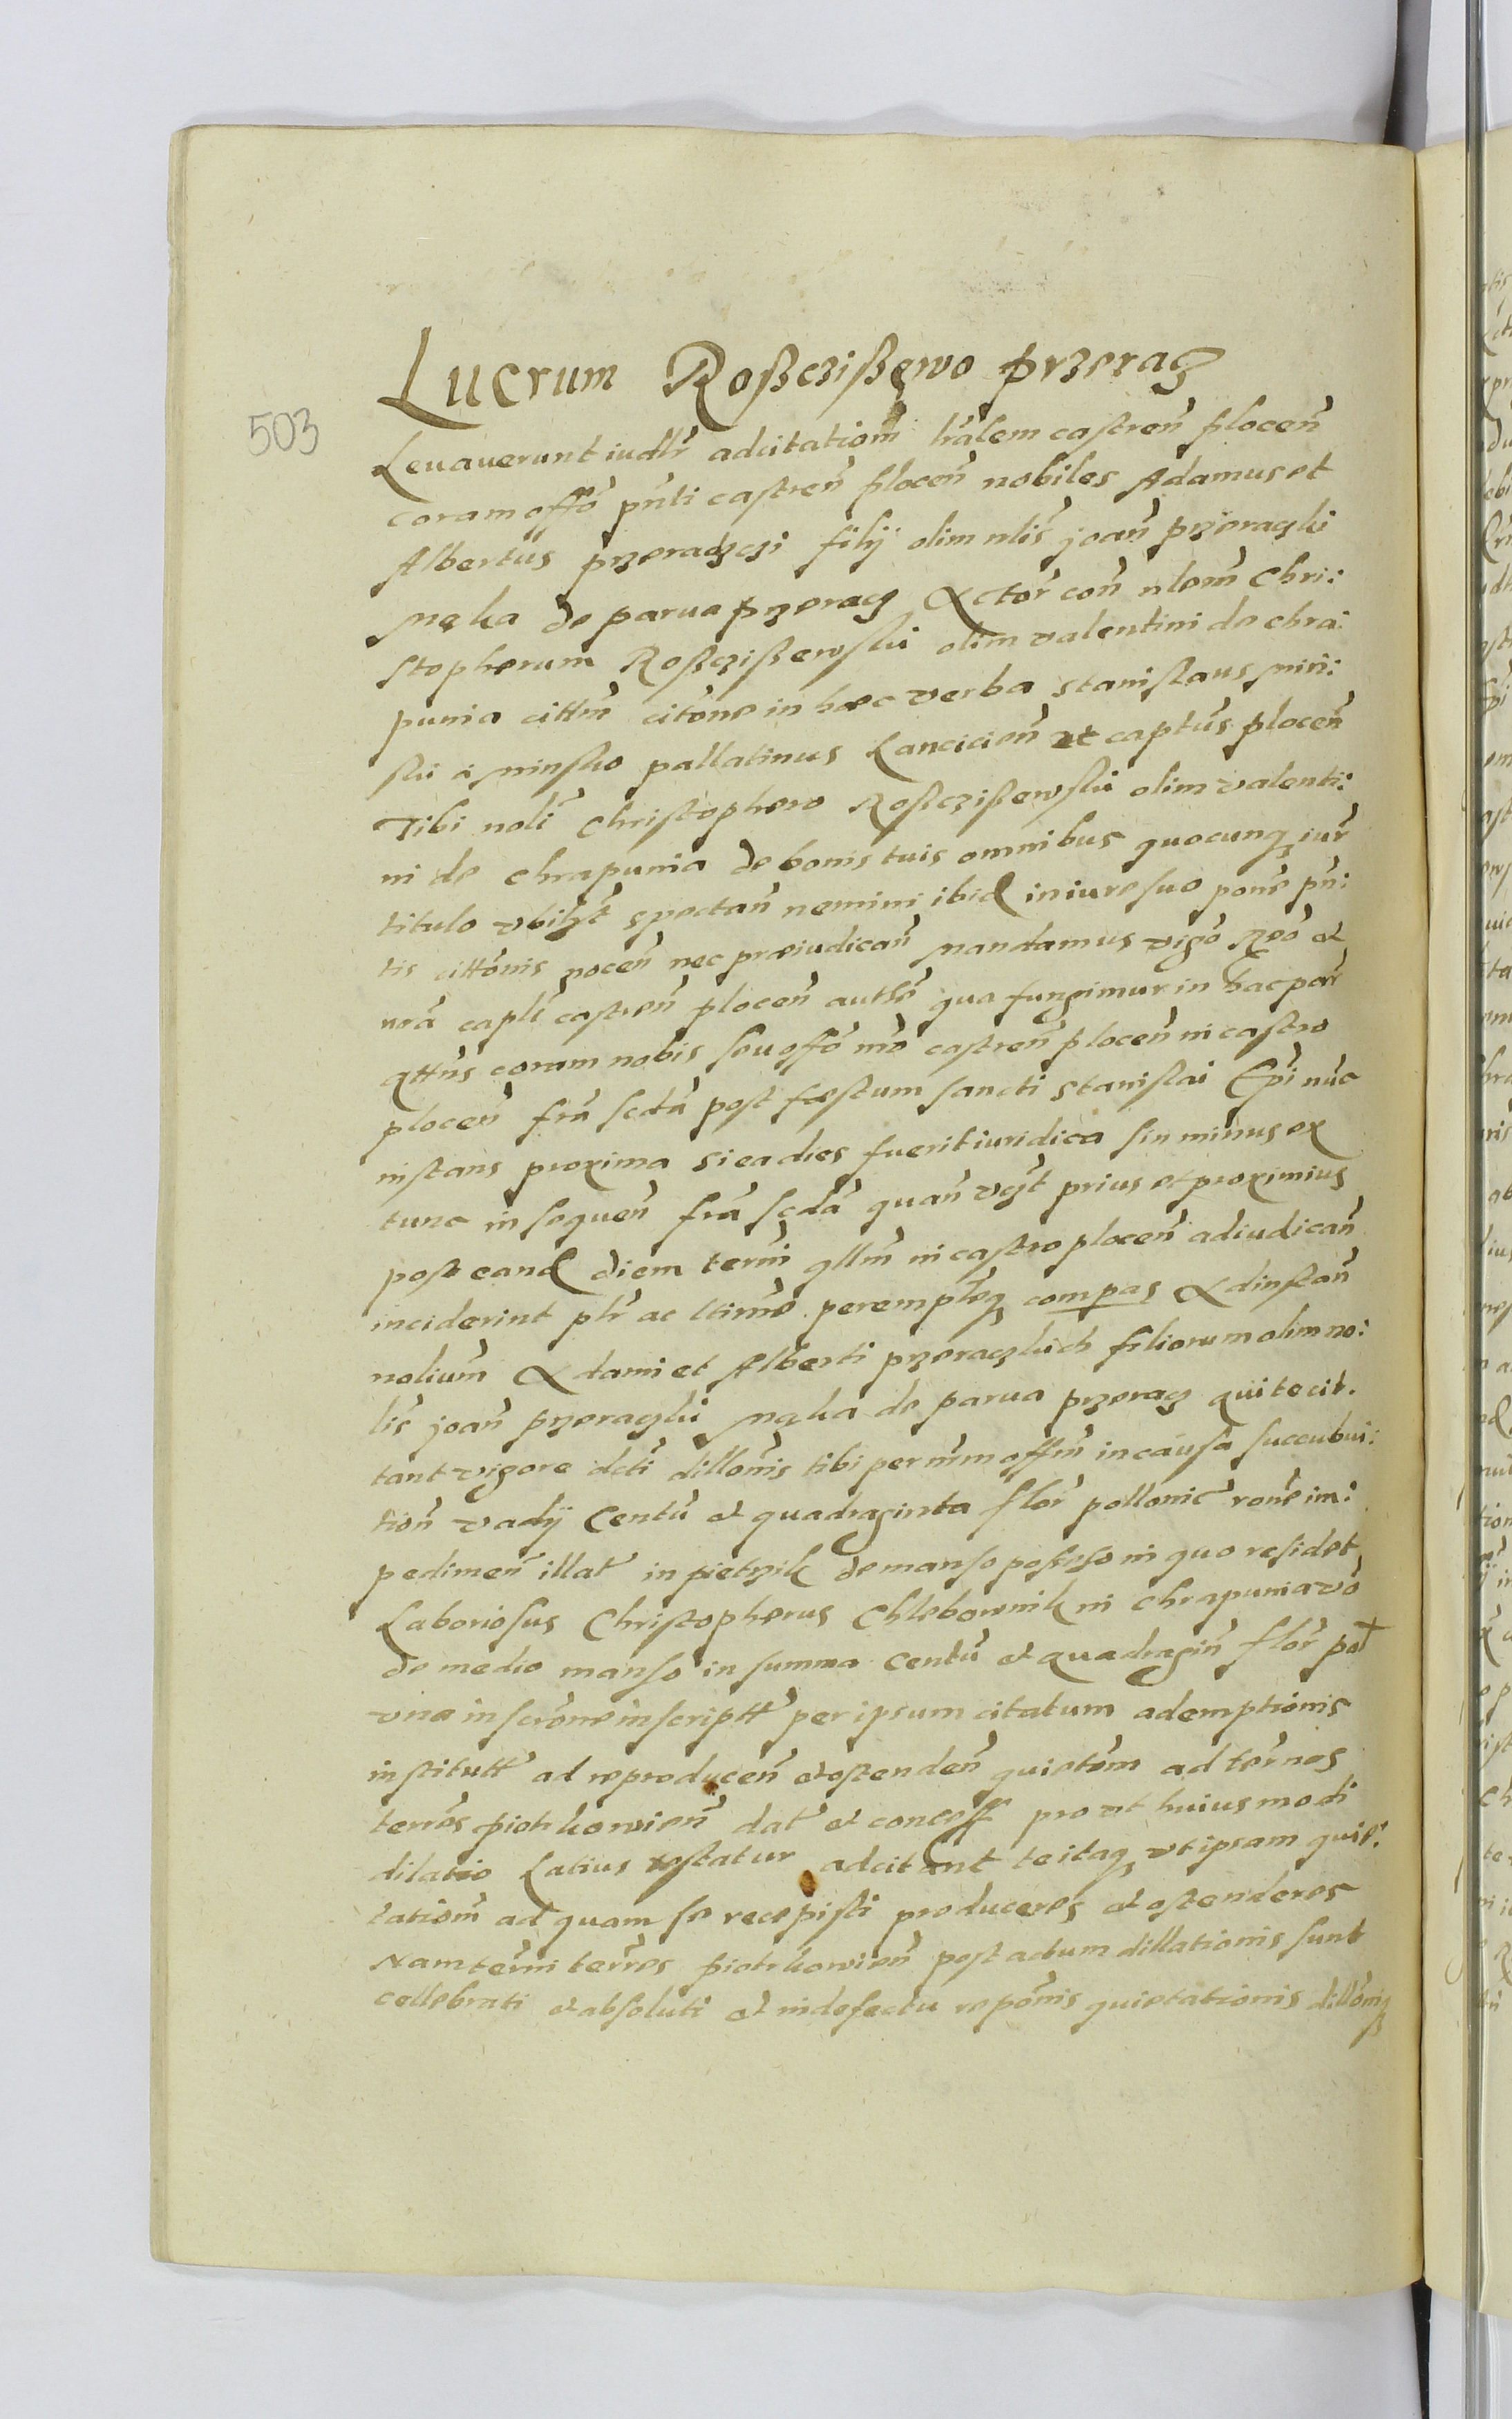 Lucrum Roßczißewo przeracz
503
Levaverunt iudlr adcitationem lralem castren plocen
coram offo pnti castren plocen nobiles Adamus et
Albertus przeradzczi filij olim nlis joan przeraczki
Mąka de parva przeracz Actor con nlem Chri:
stopherum Roßczißewski olim valentini de chra:
punia cittm citone in haec verba Stanislaus Min:
ski à Minsko pallatinus Lancicien et captus plocen
Tibi noli Christophero Roßczißewski olim valenti:
ni de chrapunia de bonis tuis omnibus quocunq iur
titulo vbilzt spectan nemini ibid in iure suo pone pn:
tis cittonis nocen nec præiudican Mandamus vigo Reo et
nra capli castren plocen autte qua fungimur in hac par
qttns coram nobis seu offo nro castren plocen in castro
plocen fra scda post festum sancti Stanislai Epi nuc
instans proxima si ea dies fuerit iuridica sin minus ex
tunc in sequen fra scda quan vczt prius et proximius
post eand diem termi qllm in castro plocen adiudican
inciderint ptr ac ltime perempteq compas Adinstan
nolium Adami et Alberti przeraczkich filiorum olim no:
lis joan przeraczki Mąka de parva przeracz qui te cit.
tant vigore dcti dillonis tibi per nrm offm in causa succubui:
tion vadij Centu et quadraginta flor pollonic rone im:
pedimen illat in pietrzik de manso possesso in quo residet
Laboriosus Christopherus Chlebownik in chrapunia vo
de medio manso in summa centu et quadragin flor pol
vna inscrone inscriptt per ipsum citatum ademptionis
institutt ad reproducen et ostenden quietem ad termos
terres piotrkowien dat et concess pro vt huiusmodi
dilatio Latius testatur adcitant te itaq vt ipsam quie:
tationem ad quam se recepisti produceres et ostenderes
Nam termi terres piotrkowien post actum dillationis sunt
cellebrati et absoluti et in defectu reponis quietationis dillonis